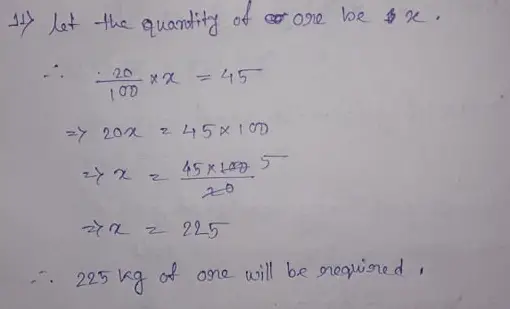 11) Let the quantity of ore be x.
∴ 20/100 × x = 45
=> 20x = 45 × 100
=> x = 45 × 100 5 / 20
=> x = 225
∴ 225 kg of ore will be required.